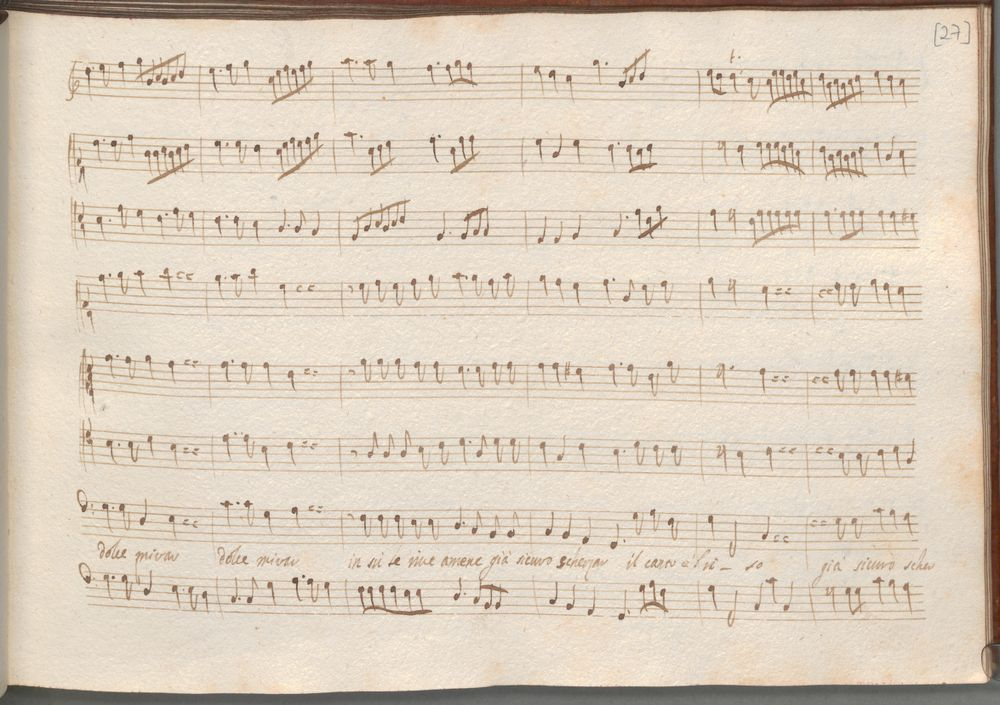 [27]
t.
dolce mirar dolce mirar in sù le rive amene già sicuro scherzar il canto e'l ri - so già sicuro scher